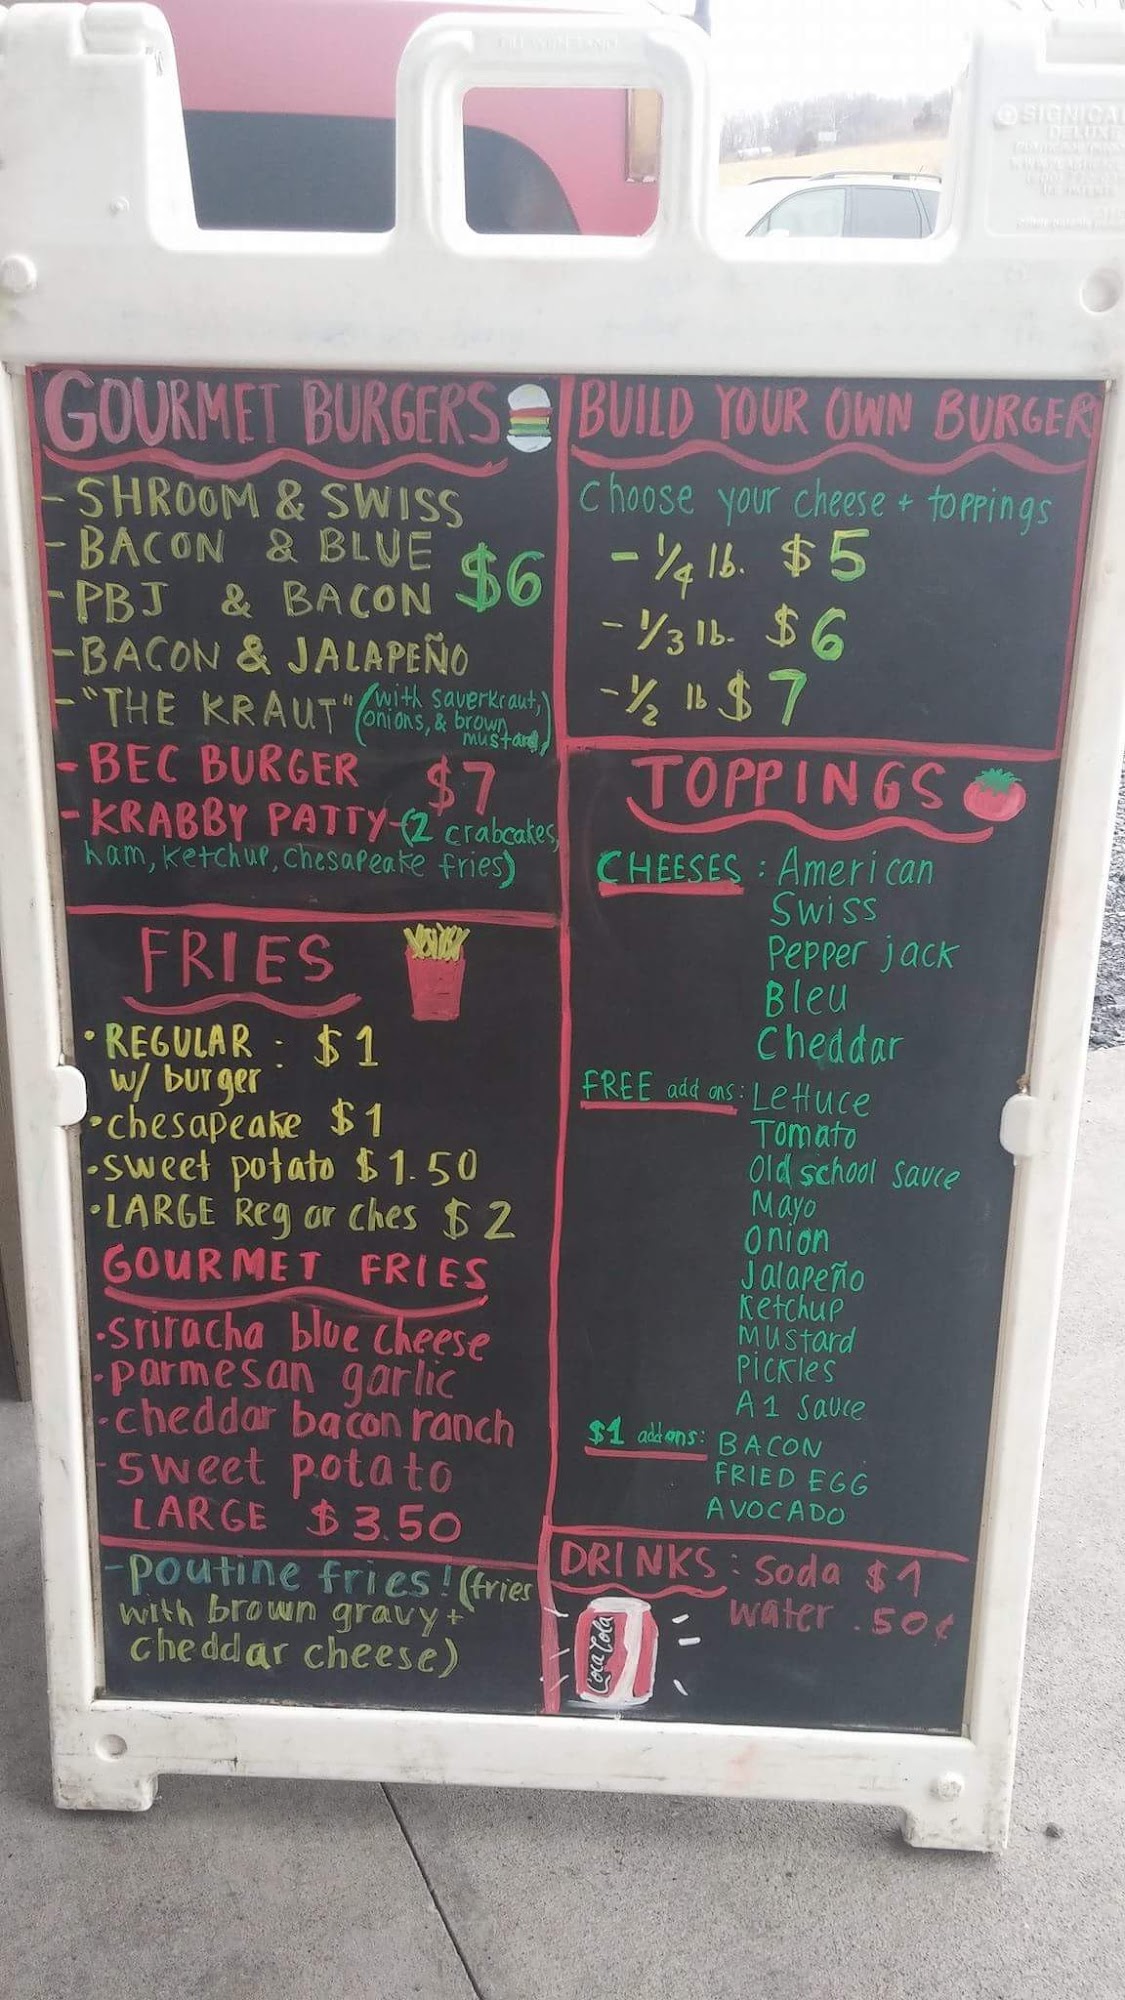 GOURMET BURGERS
- SHROOM & SWISS
- BACON & BLUE
$6
- PBJ & BACON
- BACON & JALAPEÑO
- "THE KRAUT" (with sauerkraut,
onions, & brown
mustard)
- BEC BURGER $7
- KRABBY PATTY - (2 crabcakes,
ham, ketchup, chesapeake fries)
FRIES
• REGULAR : $1
w/ burger
• chesapeake $1
• sweet potato $1.50
• LARGE Reg or ches $2
GOURMET FRIES
• sriracha blue cheese
• parmesan garlic
• cheddar bacon ranch
- sweet potato
LARGE $3.50
- Poutine fries! (fries
with brown gravy +
cheddar cheese)
BUILD YOUR OWN BURGER
Choose your cheese + toppings
- 1/4 lb. $5
- 1/3 lb. $6
- 1/2 lb $7
TOPPINGS
CHEESES : American
Swiss
Pepper jack
Bleu
Cheddar
FREE add ons: Lettuce
Tomato
Old school sauce
Mayo
Onion
Jalapeño
Ketchup
Mustard
Pickles
A1 Sauce
$1 add ons: BACON
FRIED EGG
AVOCADO
DRINKS : Soda $1
water .50¢
Coca Cola
SIGNICA
DELUXE